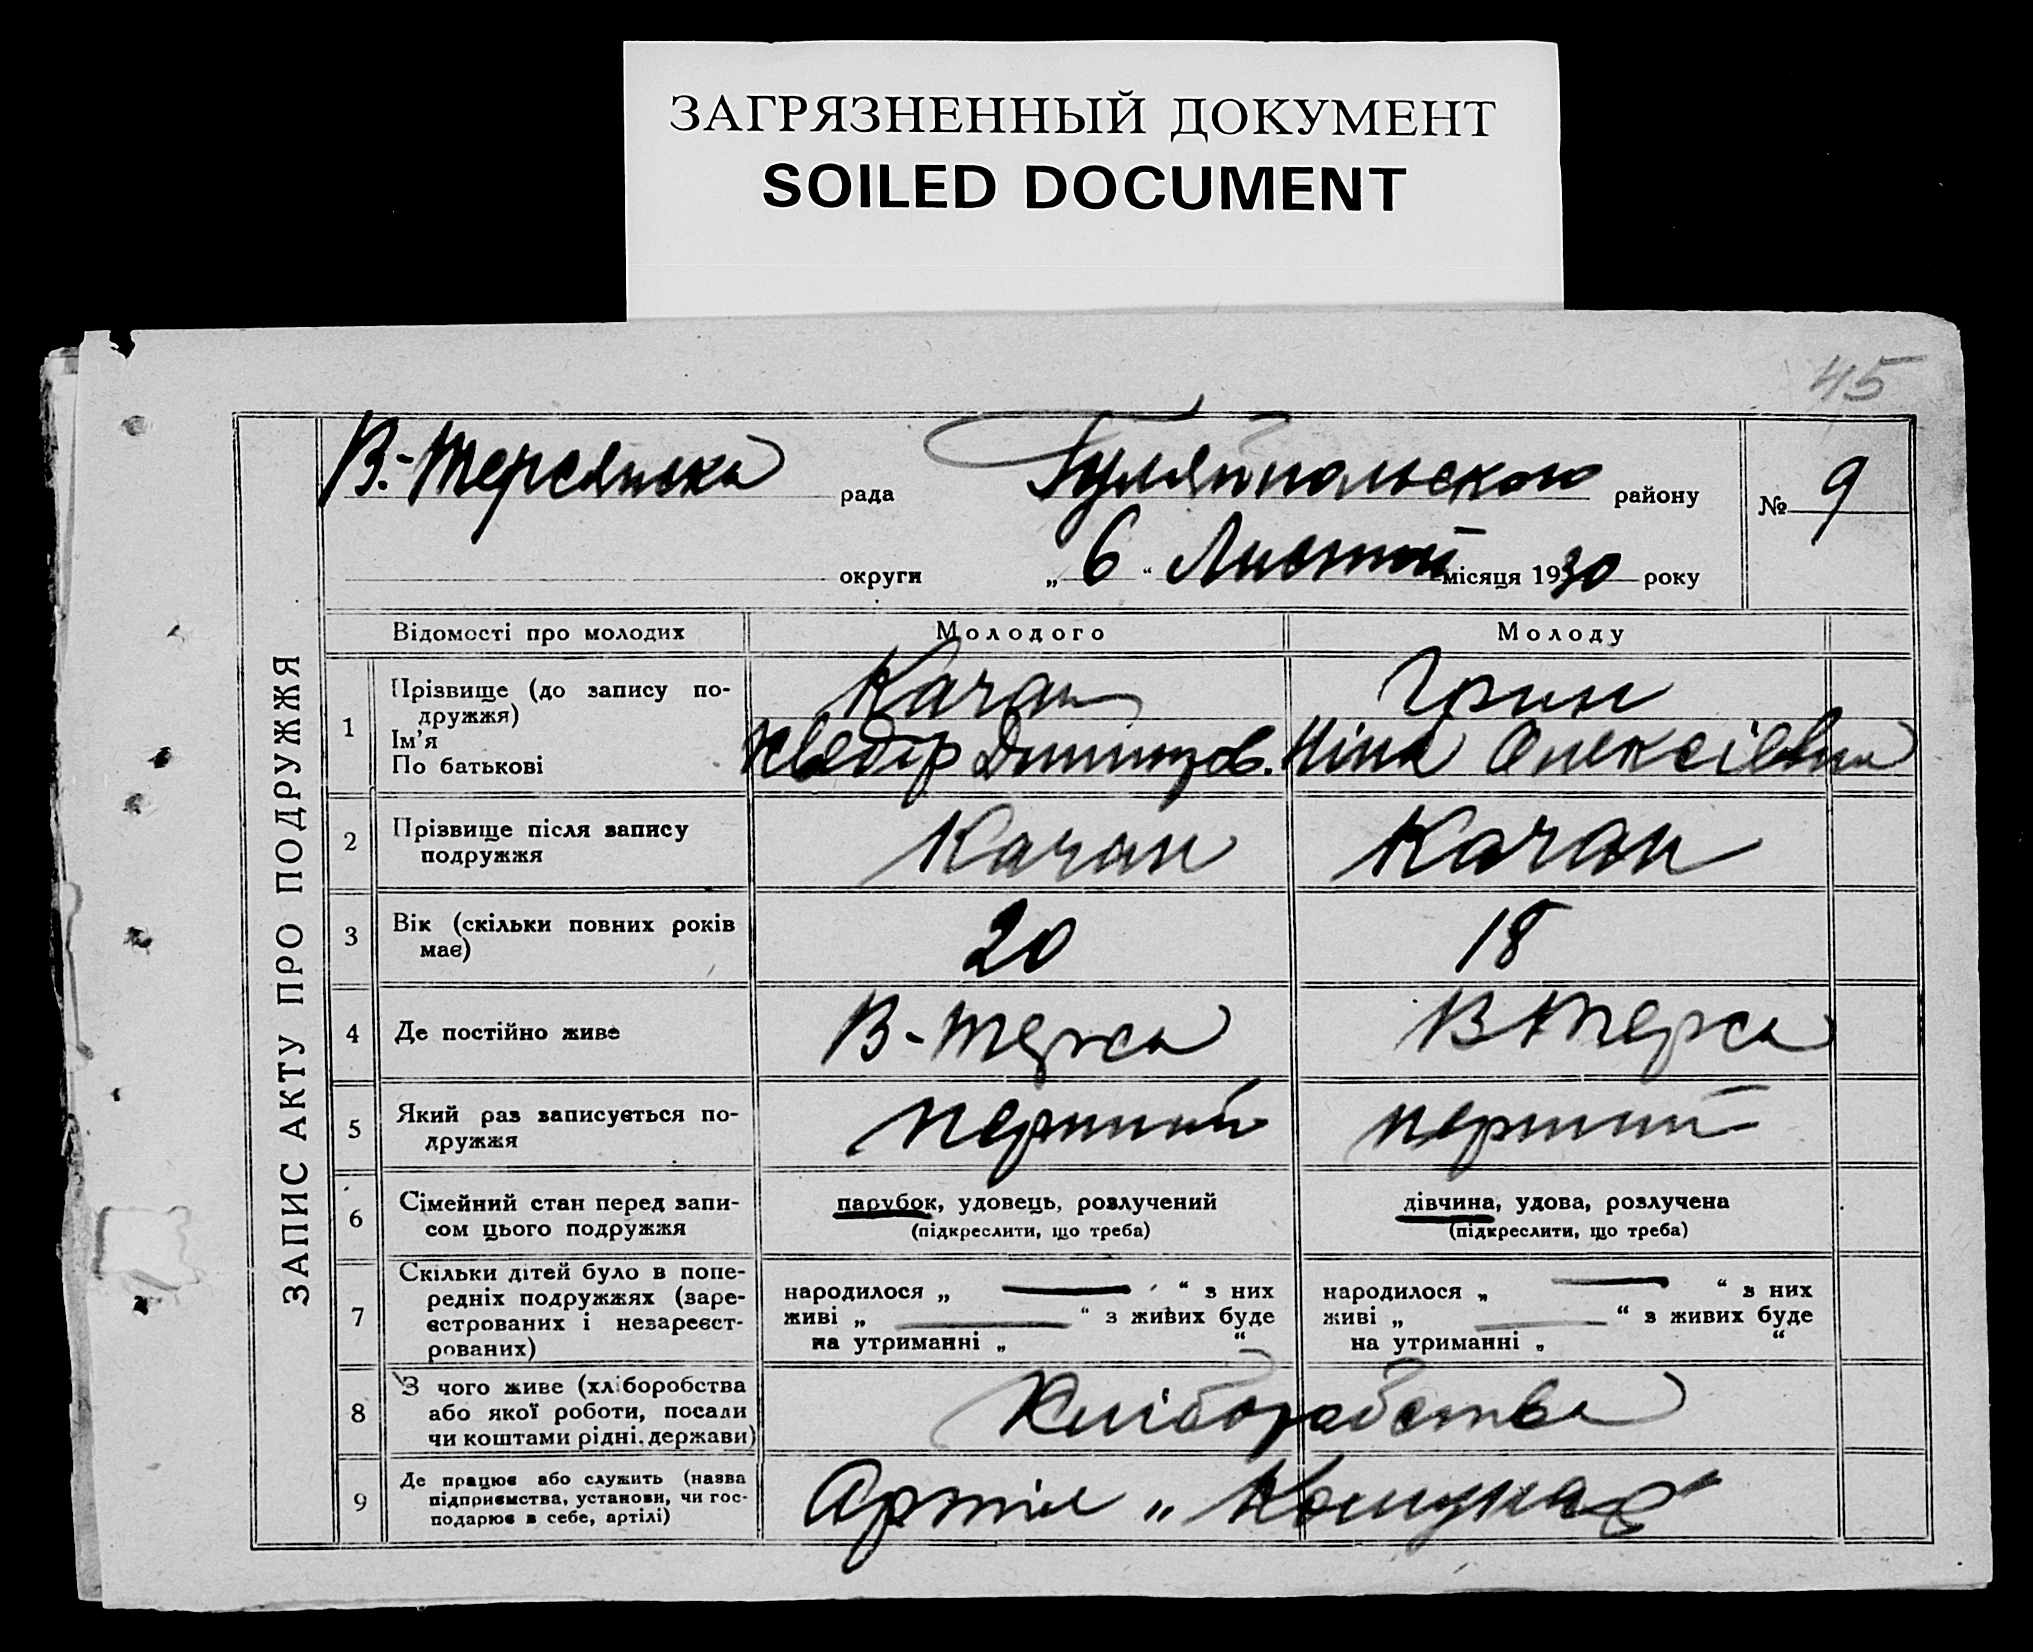 ЗАГРЯЗНЕННЫЙ ДОКУМЕНТ
SOILED DOCUMENT
45
В.-Терсянська рада Гуляйпольского району № 9
округи „ 6 “ Листопад місяця 1930 року
ЗАПИС АКТУ ПРО ПОДРУЖЖЯ
Відомості про молодих Молодого Молоду
1 Прізвище (до запису по-
дружжя)
Ім'я
По батькові
Качан Грин
Хведір Дмитров. Ніна Олексіевна
2 Прізвище після запису
подружжя
Качан Качан
3 Вік (скільки повних років
має)
20 18
4 Де постійно живе В-Терса В Терса
5 Який раз записується по-
дружжя
перший перший
6 Сімейний стан перед запи-
сом цього подружжя
парубок, удовець, розлучений
(підкреслити, що треба)
дівчина, удова, розлучена
(підкреслити, що треба)
7 Скільки дітей було в попе-
редніх подружжях (заре-
єстрованих і незареєст-
рованих)
народилося „ — “ з них
живі „ — “ з живих буде
на утриманні „ “
народилося „ — “ з них
живі „ — “ з живих буде
на утриманні „ “
8 З чого живе (хліборобства
або якої роботи, посади
чи коштами рідні, держави)
Хліборобства
9 Де працює або служить (назва
підприємства, установи, чи гос-
подарює в себе, артілі)
Артіл „